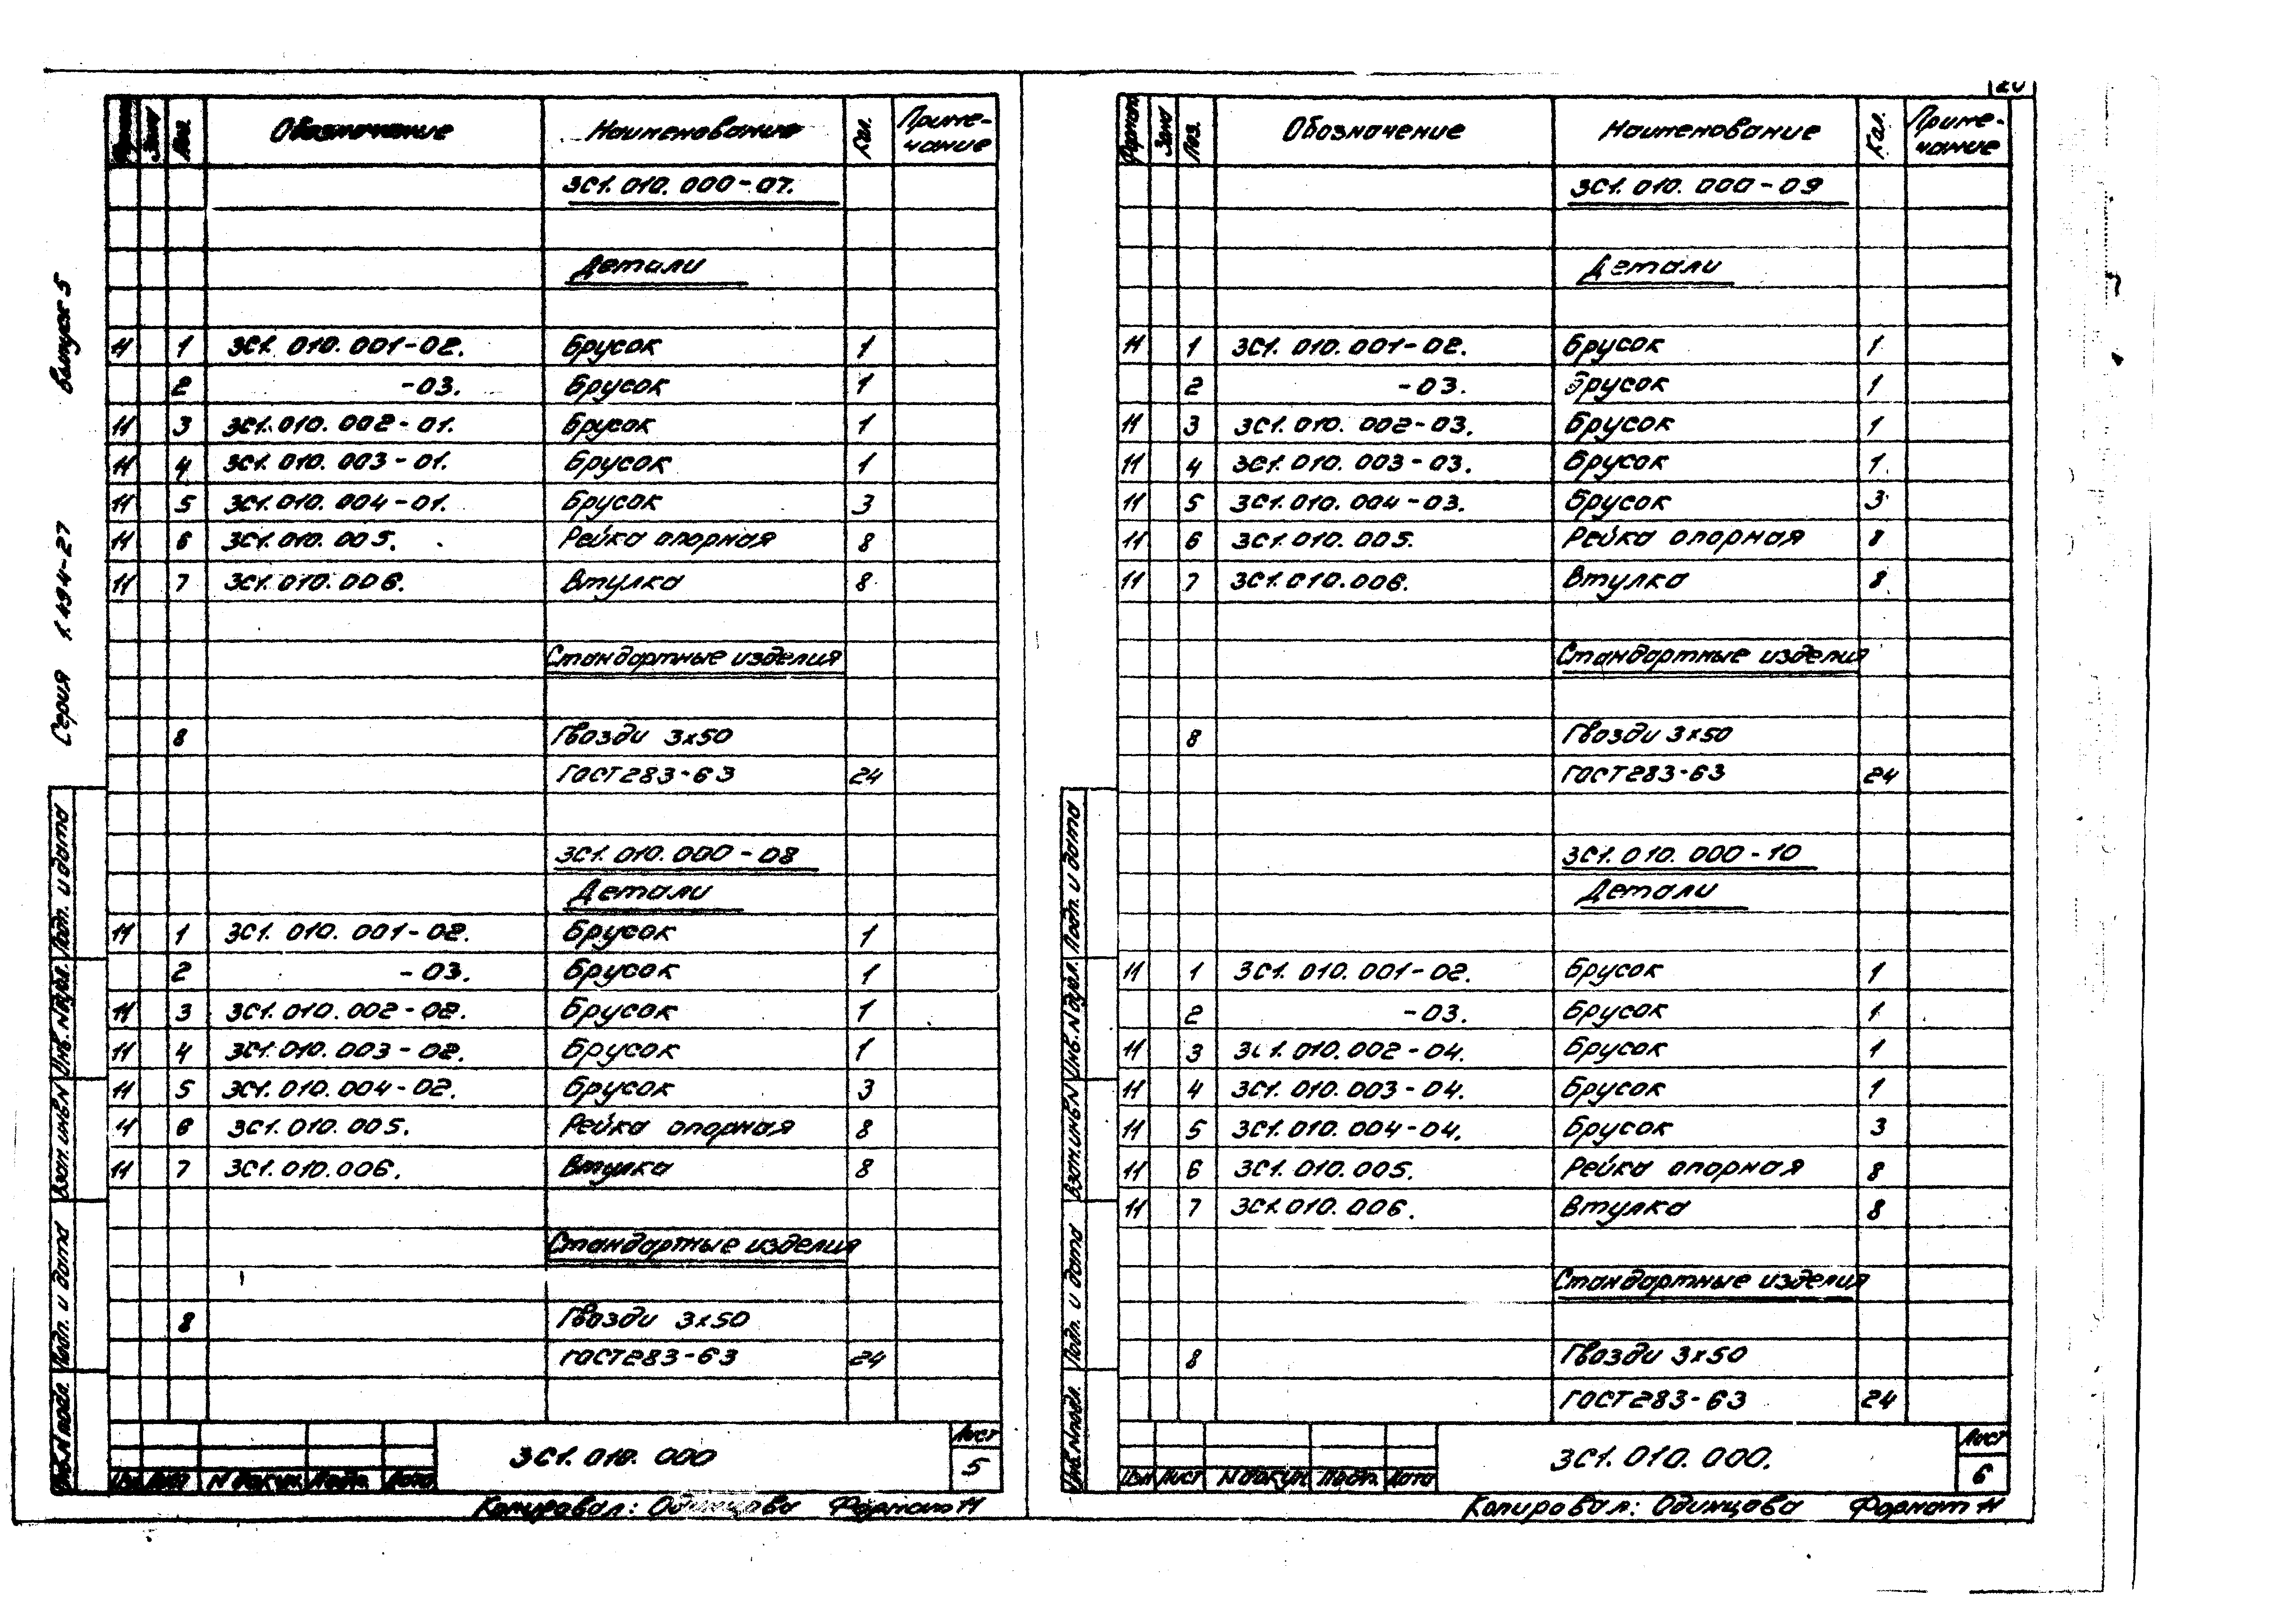 Серия 1.494-27 Выпуск 5
Формат Зона Поз. Обозначение Наименование Кол. Приме-
чание
3С1.010.000-07.
Детали
11 1 3С1.010.001-02. Брусок 1
2 -03. Брусок 1
11 3 3С1.010.002-01. Брусок 1
11 4 3С1.010.003-01. Брусок 1
11 5 3С1.010.004-01. Брусок 3
11 6 3С1.010.005. Рейка опорная 8
11 7 3С1.010.006. Втулка 8
Стандартные изделия
8 Гвозди 3х50
ГОСТ 283-63 24
3С1.010.000-08
Детали
11 1 3С1.010.001-02. Брусок 1
2 -03. Брусок 1
11 3 3С1.010.002-02. Брусок 1
11 4 3С1.010.003-02. Брусок 1
11 5 3С1.010.004-02. Брусок 3
11 6 3С1.010.005. Рейка опорная 8
11 7 3С1.010.006. Втулка 8
Стандартные изделия
8 Гвозди 3х50
ГОСТ 283-63 24
Инв.N подл. Подп. и дата Взам.инв.N Инв.N дубл. Подп. и дата
Изм Лист N докум. Подп. Дата
3С1.010.000
Лист
5
Копировал: Одинцова Формат 11
Формат Зона Поз. Обозначение Наименование Кол. Приме-
чание
3С1.010.000-09
Детали
11 1 3С1.010.001-02. Брусок 1
2 -03. Брусок 1
11 3 3С1.010.002-03. Брусок 1
11 4 3С1.010.003-03. Брусок 1
11 5 3С1.010.004-03. Брусок 3
11 6 3С1.010.005. Рейка опорная 8
11 7 3С1.010.006. Втулка 8
Стандартные изделия
8 Гвозди 3х50
ГОСТ 283-63 24
3С1.010.000-10
Детали
11 1 3С1.010.001-02. Брусок 1
2 -03. Брусок 1
11 3 3С1.010.002-04. Брусок 1
11 4 3С1.010.003-04. Брусок 1
11 5 3С1.010.004-04. Брусок 3
11 6 3С1.010.005. Рейка опорная 8
11 7 3С1.010.006. Втулка 8
Стандартные изделия
8 Гвозди 3х50
ГОСТ 283-63 24
Инв.N подл. Подп. и дата Взам.инв.N Инв.N дубл. Подп. и дата
Изм Лист N докум. Подп. Дата
3С1.010.000.
Лист
6
Копировал: Одинцова Формат 11